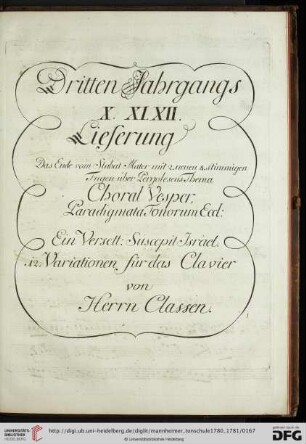 Dritten Jahrgangs
X. XI. XII.
Lieferung
Das Ende vom Stabat Mater mit 2. neuen 4. stimmigen
Fugen über Pergolesens Thema
Choral Vesper,
Paradigmata Tonorum Ecd:
Ein Versett: Suscepit Israel
12. Variationen für das Clavier
von
Herrn Classen.
UNIVERSITÄTS-
BIBLIOTHEK
HEIDELBERG
http://digi.ub.uni-heidelberg.de/diglit/mannheimer_tonschule1780_1781/0167
© Universitätsbibliothek Heidelberg
gefördert durch die
DFG